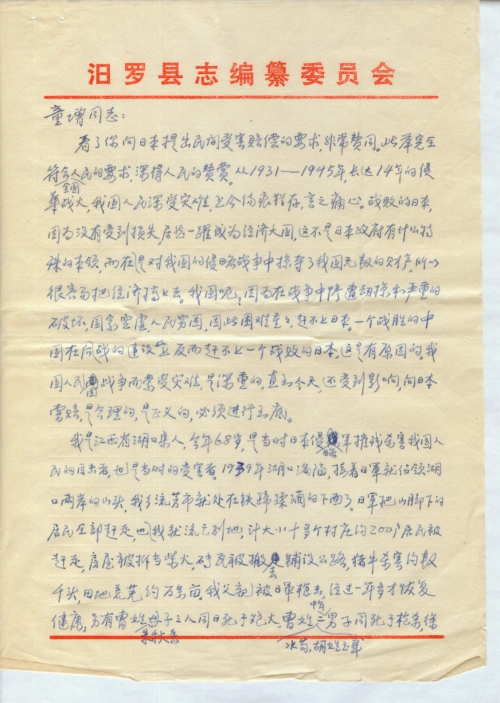 汨罗县志编纂委员会
童增同志：
看了你向日本提出民间受害赔偿的要求，非常赞同。此举完全
符合全国人民的要求，深得人民的赞赏。从1931—1945年，长达14年的侵
华战火，我国人民深受灾难，至今伤痕犹存，言之痛心。战败的日本，
因为没有受到损失，居然一跃成为经济大国，这不是日本政府有什么特
殊的本领，而在是对我国的侵略战争中掠夺了我国无数的财产，所以
很容易把经济搞上去。我国呢，因为在战争中惨遭劫掠和严重的
破坏，国家空虚人民穷困，因此困难至今，赶不上日本。一个战胜的中
国在同战的建设上反而赶不上一个战败的日本，这是有原因的，我
国人民因战争而蒙受灾难，是深重的，直到今天，还受到影响，向日本
索赔，是合理的，是正义的，必须进行到底。
我是江西省湖口县人，今年68岁，是当时日本侵略军摧残杀害我国人
民的目击者，也是当时的受害者。1939年湖口沦陷，接着日军就占领湖
口两岸的山头，我乡流芳市就处在铁蹄蹂躏的下面了。日军把山脚下的
居民全部赶走，我就流亡到他地，计大小十多个村庄约200户居民被
赶走，房屋被拆当柴火，砖瓦被搬去铺设公路，猪牛杀害约数
千头，田地荒芜约万余亩，我父亲被日军枪击，经过一年多才恢复
健康，另有曹姓母子三人同日死于炮火，曹姓二男子同死于枪杀，徐